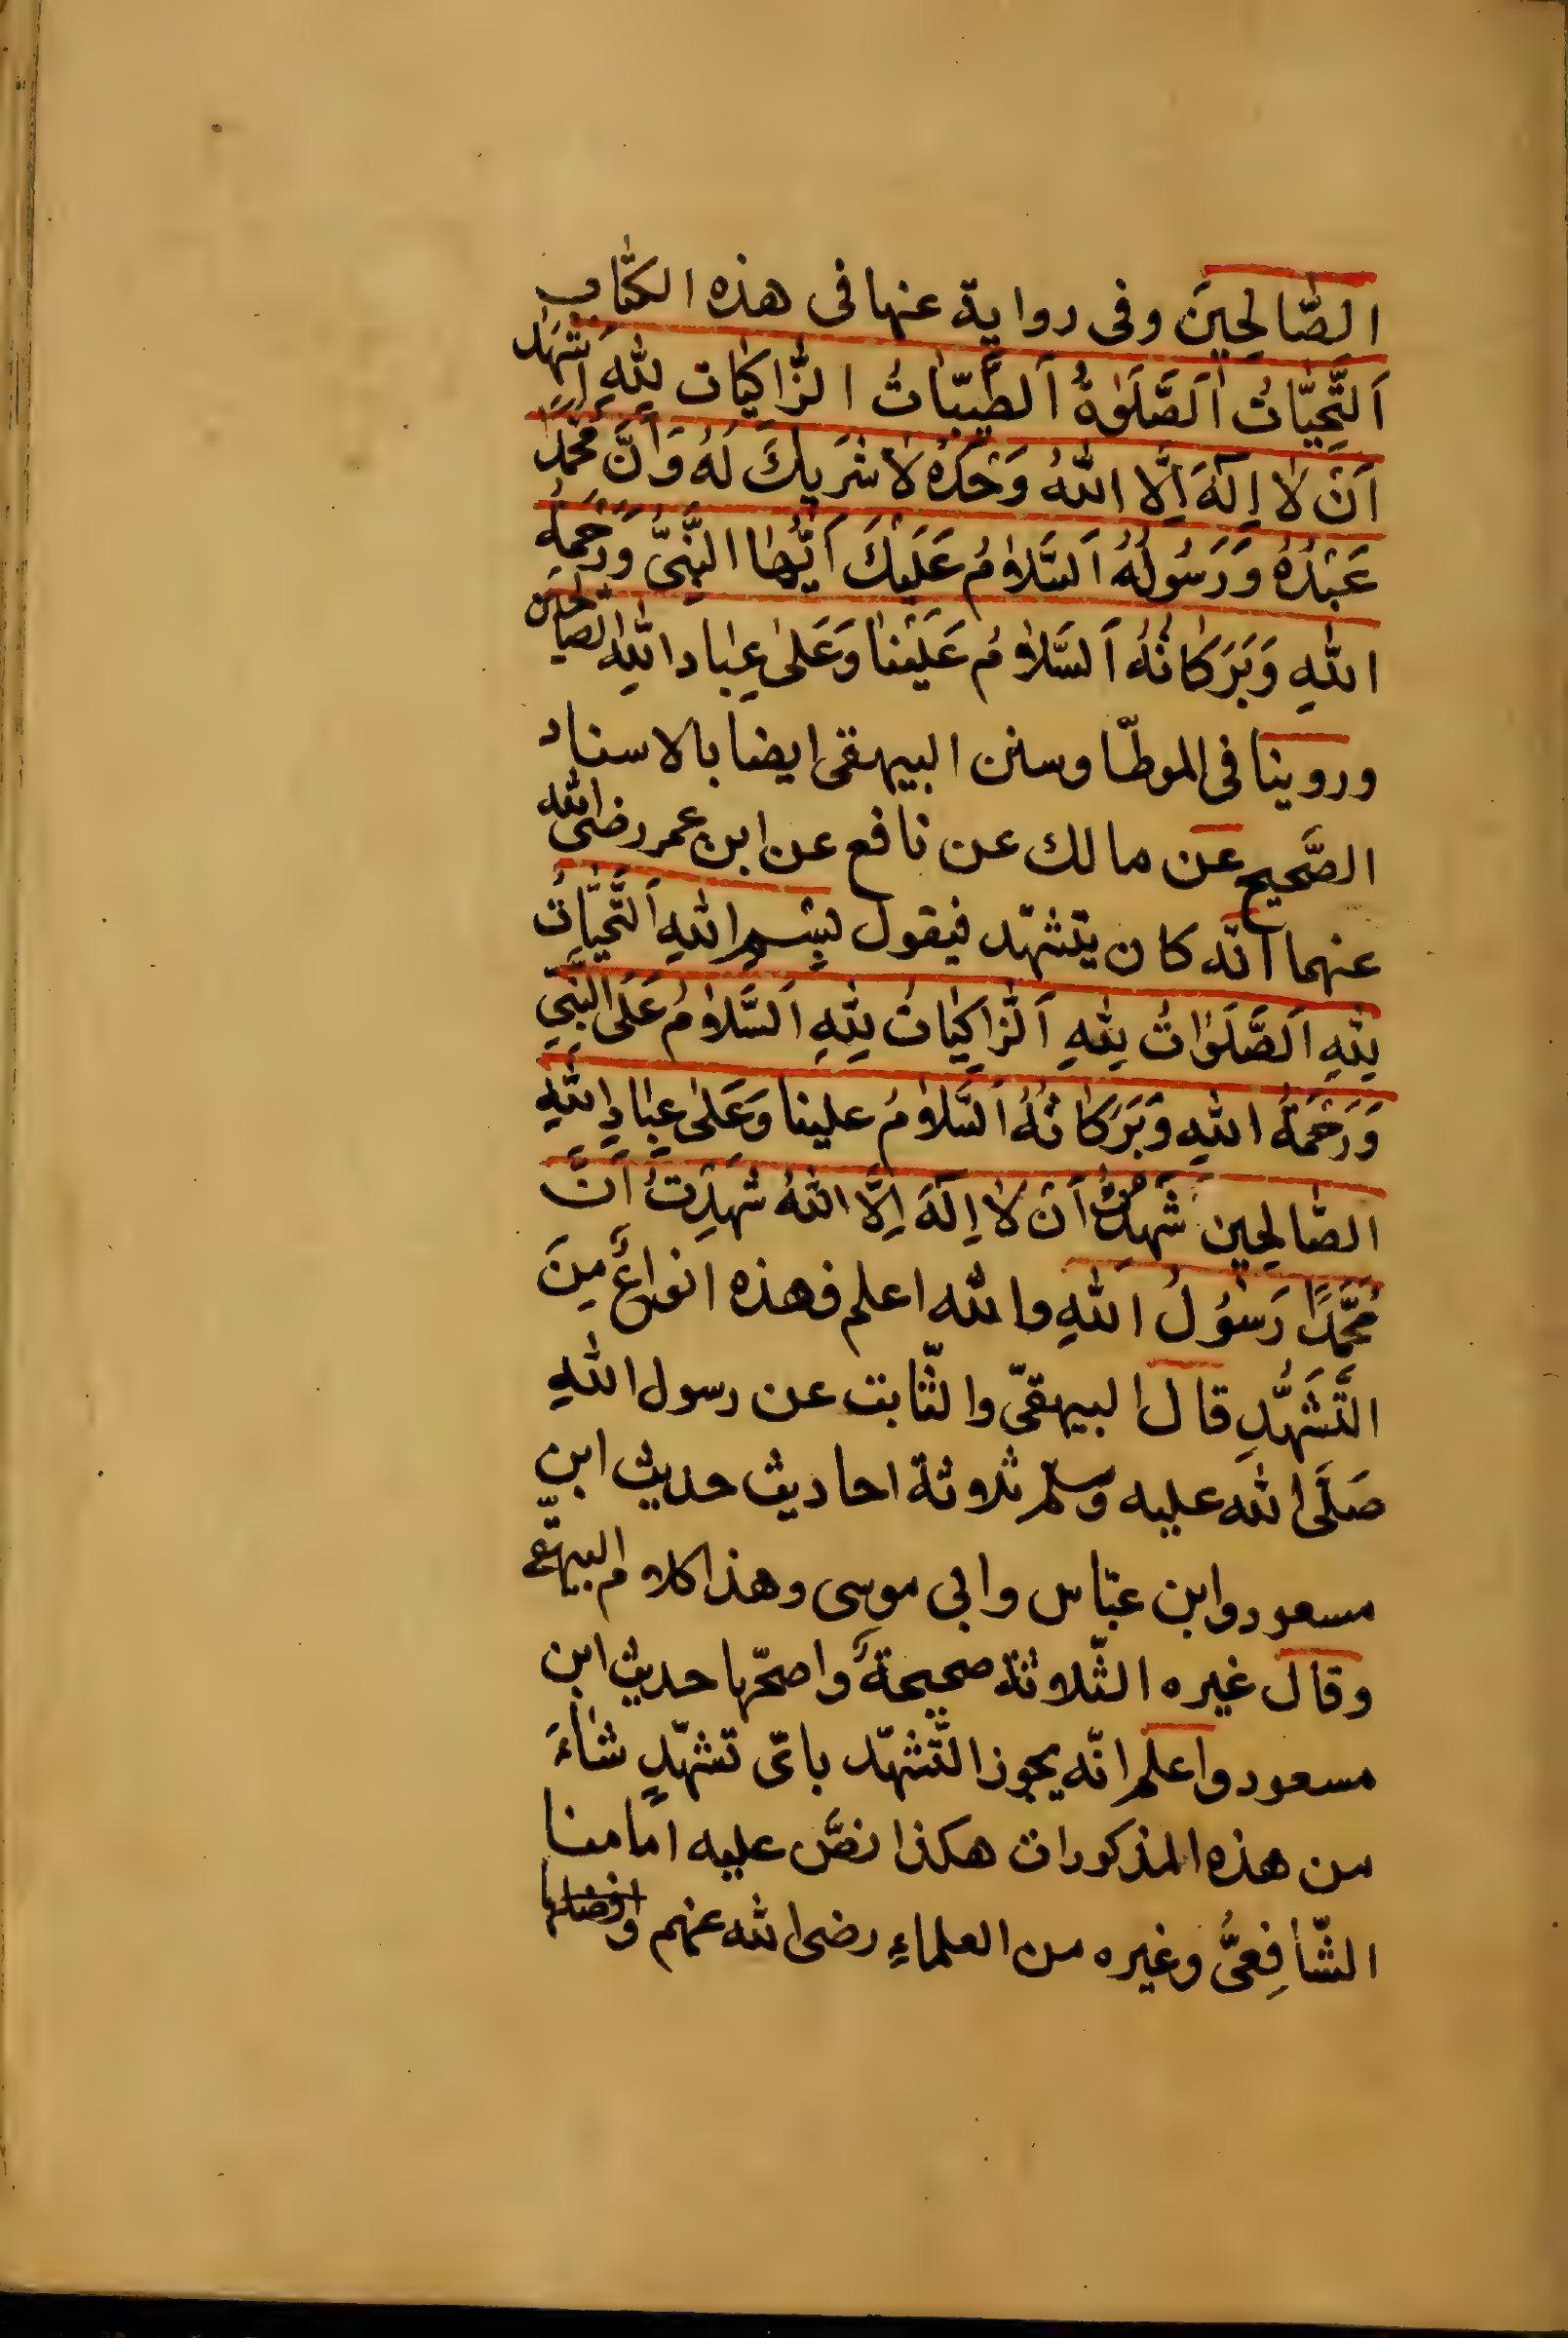 الصّالِحِينَ وفى رواية عنها فى هذه الكتاب
اَلتَّحِيّاتُ اَلصَّلَوٰةُ اَلطَّيِّبّاتُ الزّاكِيات لِلّٰهِ اَشْهَدُ
اَنْ لا اِلٓهَ اِلَّا اللهُ وَحْدَهُ لا شَرِيكَ لَهُ وَاَنَّ مُحَمَّدً
عَبْدُهُ وَرَسُولُهُ اَلسَّلامُ عَلَيْكَ اَيُّها النَّبِىُّ وَرَحْمَةُ
اللهِ وَبَرَكاتُهُ اَلسَّلامُ عَلَيْنا وَعَلىٰ عِباد اللهِ الصالحين
وروينا فى الموطّا وسنن البيهقى ايضا بالاسناد
الصَّحيح عن مالك عن نافع عن ابن عمر رضى الله
عنهما انّه كان يتشهّد فيقول بِسْمِ اللهِ اَلتَّحِيّاتُ
لِلّٰهِ اَلصَّلَوٰاتُ لِلّٰهِ اَلزّاكِياتُ لِلّٰهِ اَلسَّلامُ عَلَى النَّبِيِّ
وَرَحْمَةُ اللهِ وَبَرَكاتُهُ اَلسَّلامُ علينا وَعَلىٰ عِبادِ اللهِ
الصّالِحِين شَهِدْتُ اَنْ لا اِلٓهَ اِلَّا اللهُ شَهِدْتُ اَنَّ
مُحَمَّدًا رَسُولُ اللهِ والله اعلم فهذه انواعٌ مِنَ
التَّشَهُّدِ قال البيهقىّ والثّابت عن رسول اللهِ
صَلَّى الله عليه وسلم ثلاثة احاديث حديث ابن
مسعود وابن عبّاس وابى موسى وهذا كلام البيهقىّ
وقال غيره الثّلاثة صحيحةٌ واصحّها حديث ابن
مسعود واعلم انّه يجوز التّشهّد باىّ تشهّدٍ شاءَ
من هذه المذكورات هكذا نصَّ عليه امامنا
الشّافِعىُّ وغيره من العلماءِ رضى الله عنهم وافضلها